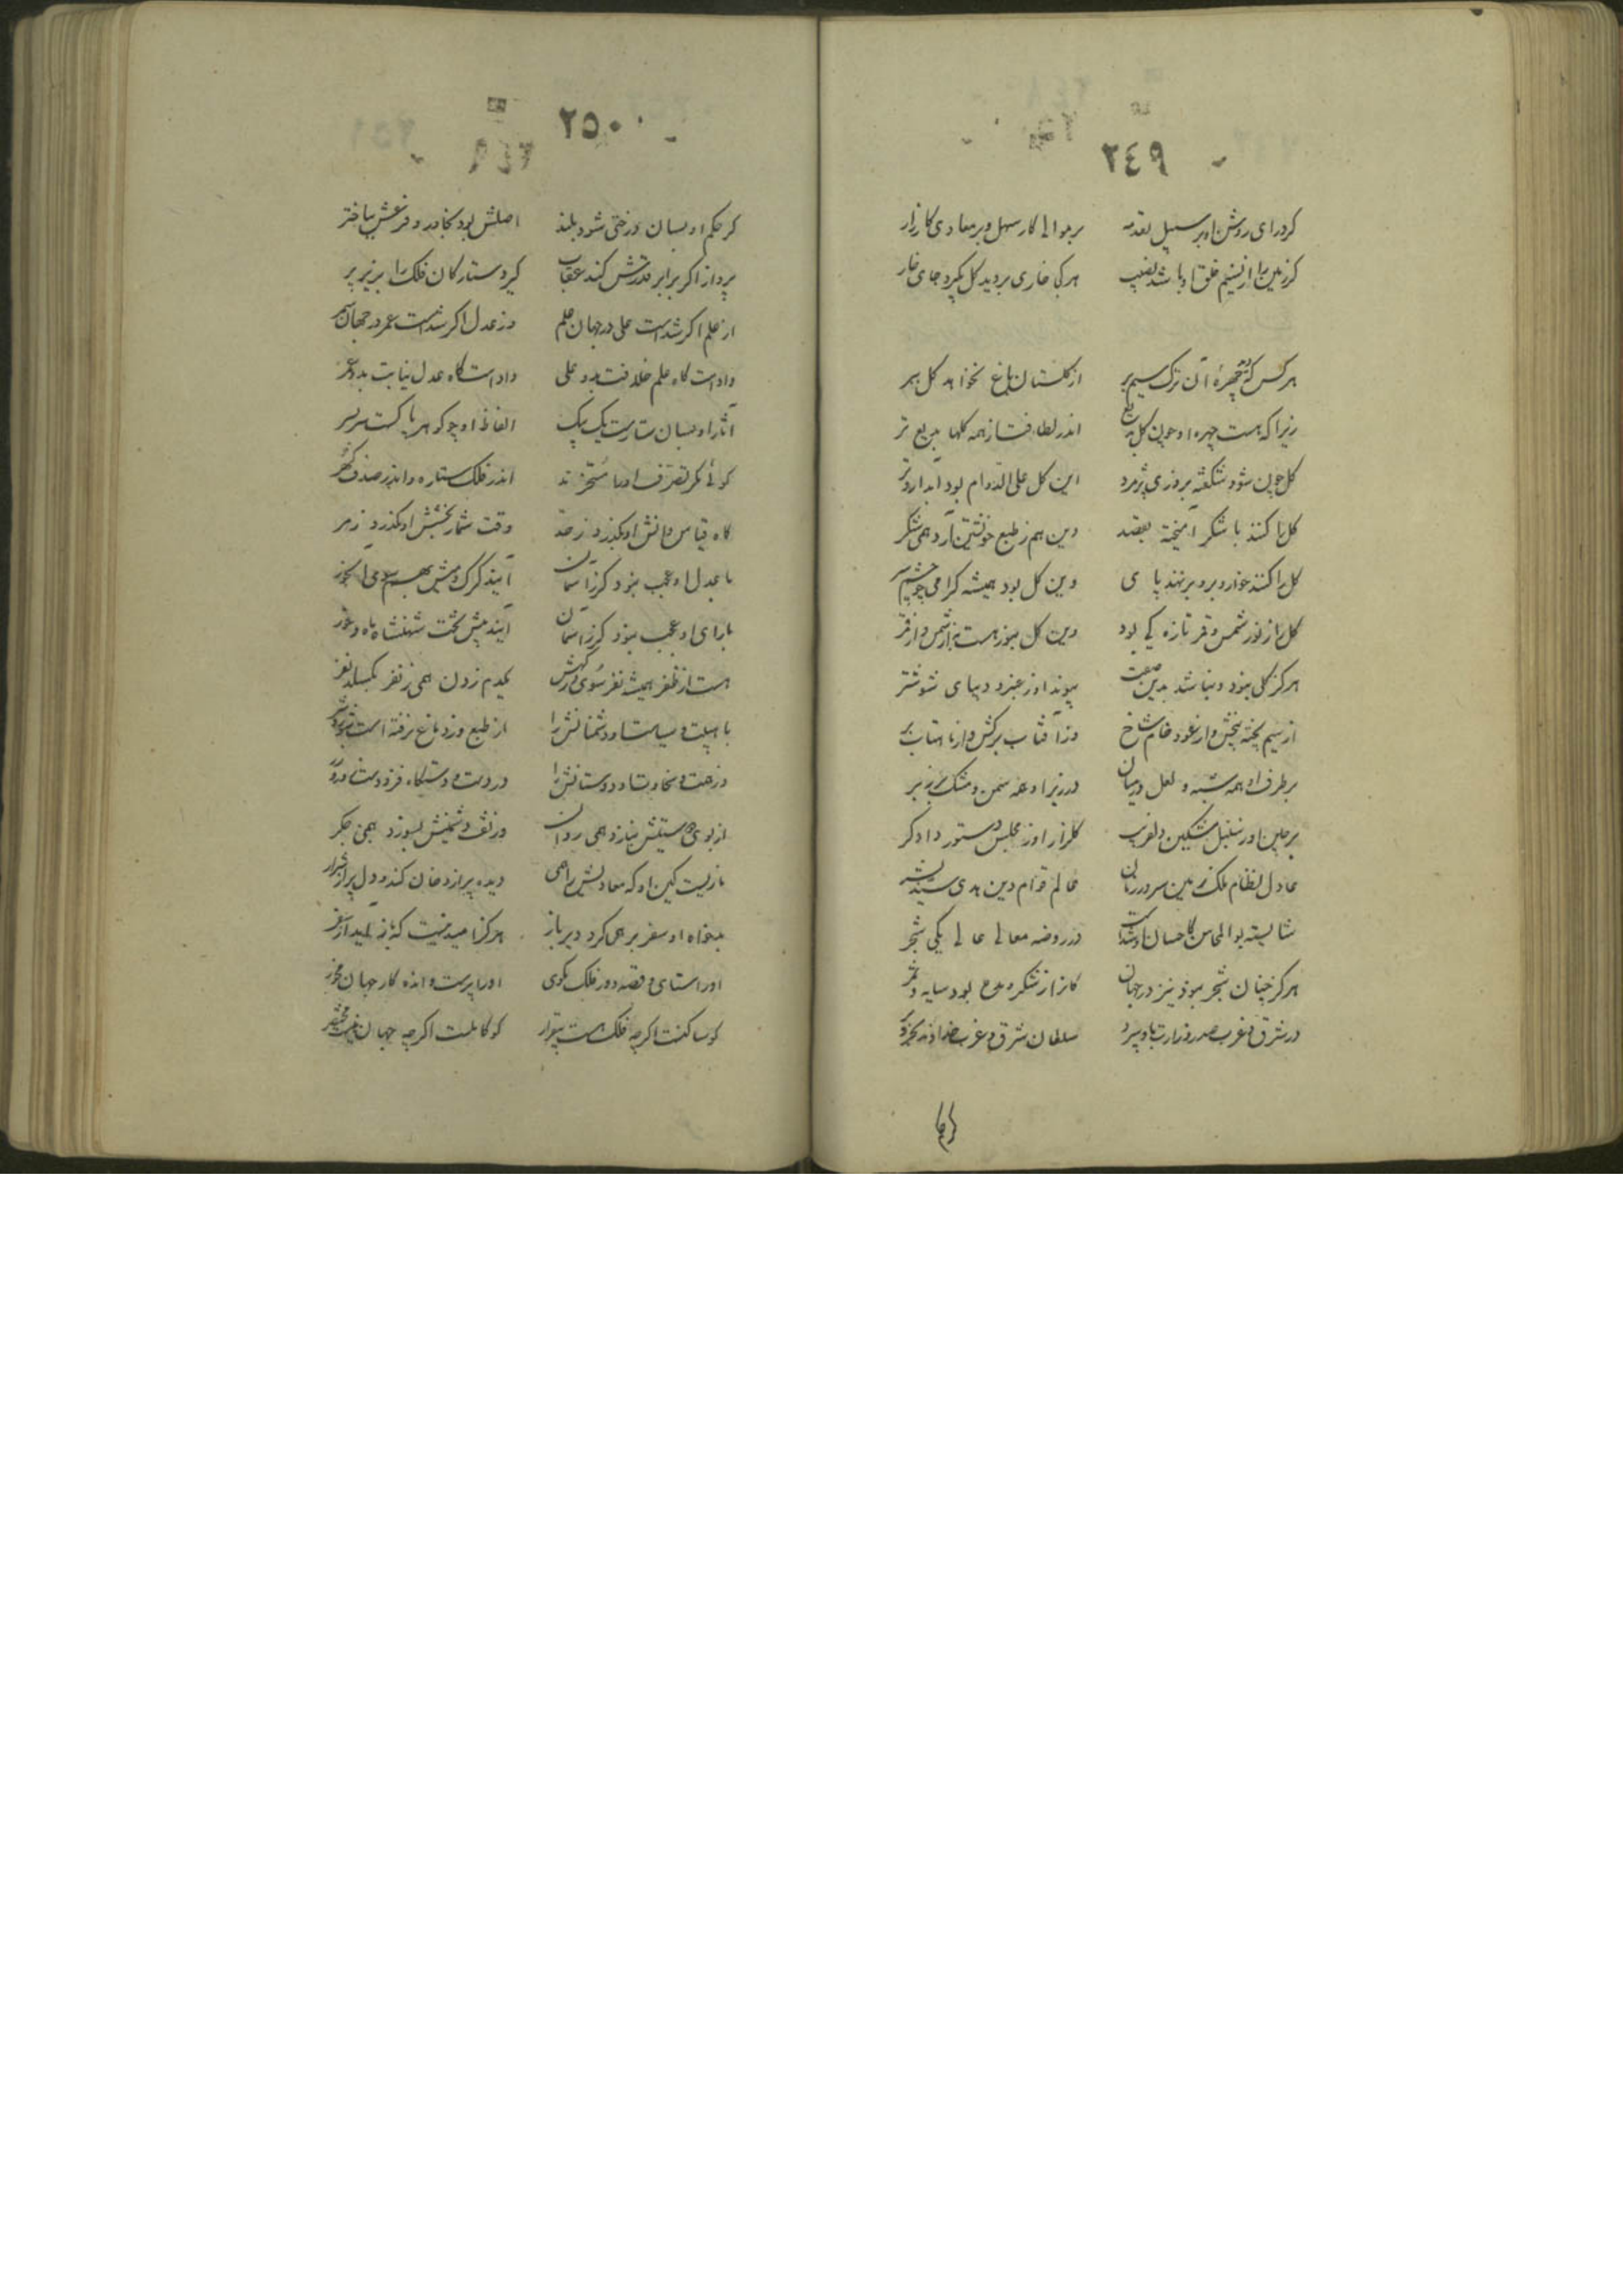 ٢٤٩
کرد رای روشن او بر سبیل تقدمه بر موالی کار سهل و بر معادی کارزار
کر زمین را از نسیم خلق او باشد نصیب هر کجا خاری بروید کل بگیرد جای خار
هر کس که دید چهرهٔ آن ترک سیمبر از گلستان باغ نخواهد کل ببر
زیرا که هست چهره او چون کل بدیع اندر لطافت از همه کلها بدیع تر
کل چون شود شکفته بروزی پژمرد این کل علی الدوام بود آبدار و تر
کل را کنند با شکر آمیخته بقصد وین هم ز طبع خویشتن آرد همی شکر
کل را کنند خوار و برو بر نهند پای وین کل بود همیشه کرامی چو چشم سر
کل را ز نور شمس و قمر تازه کی بود وین کل بنور هست به از شمس و از قمر
هرکز کلی نبود و نباشد بدین صفت پیوند او ز عنبر و دیبای ششتر
از سیم پخته بیخش و از عود خام شاخ وز آفتاب برکش و از ماهتاب بر
بر طرف او همه شبه و لعل در میان در زیر او همه سمن و مشک بر زبر
پرچین او ز سنبل مشکین دلفریب کلزار او ز مجلس دستور دادکر
عادل نظام ملک زمین سرور زمان عالم قوام دین هدی سید بشر
شایسته بوالمحاسن کاحسان او شدست در روضه معالی عالی یکی شجر
هرکز چنان شجر نبود نیز در جهان کانرا ز شکر و مدح بود سایه و ثمر
در شرق و غرب صدر وزارت باو سپرد سلطان شرق و غرب خداوند بحر و بر
٢٥٠
کر حکم او بسان درختی شود بلند اصلش بود بخاور و فرعش بباختر
پرواز اکر برابر قدرش کند عقاب کیرد ستارکان فلک را بزیر پر
از علم اکر شدست علی در جهان علم وز عدل اکر شدست عمر در جهان سمر
دادست کاه علم خلافت بدو علی دادست کاه عدل نیابت بدو عمر
آثار او بسان ستارست یک بیک الفاظ او چو کوهر پاکست سربسر
کوئی مکر تصرف او را مسخرند اندر فلک ستاره و اندر صدف کهر
کاه قیاس دانش او بکذرد ز حد وقت شمار بخشش او بکذرد ز مر
با عدل او عجب نبود کر ز آسمان آیند کرک و میش بهم سوی آبخور
با رای او عجب نبود کر ز آسمان آیند پیش تخت شهنشاه ماه و خور
هست از ظفر همیشه نفر سوی درکهش یکدم زدن همی ز نفر نکسلد نفر
با هیبت و سیاست او دشمنانش را از طبع و از دماغ برفتست
وز همت و سخاوت او دوستانش را در دست و دستکاه فزودست
از بوی دوستیش بنازد همی روان وز تف دشمنیش بسوزد همی جکر
ناریست کین او که معادیش را همی دیده پر از دخان کند و دل پر از شرر
بدخواه او سفر بر همی کرد دیرباز هرکز امید نیست که باز آید از سفر
او را ستای و قصه دور فلک مکوی او را پرست و انده کار جهان مخور
کو ساکنست اکرچه فلک هست بیقرار کو کاملست اکرچه جهانیست مختصر